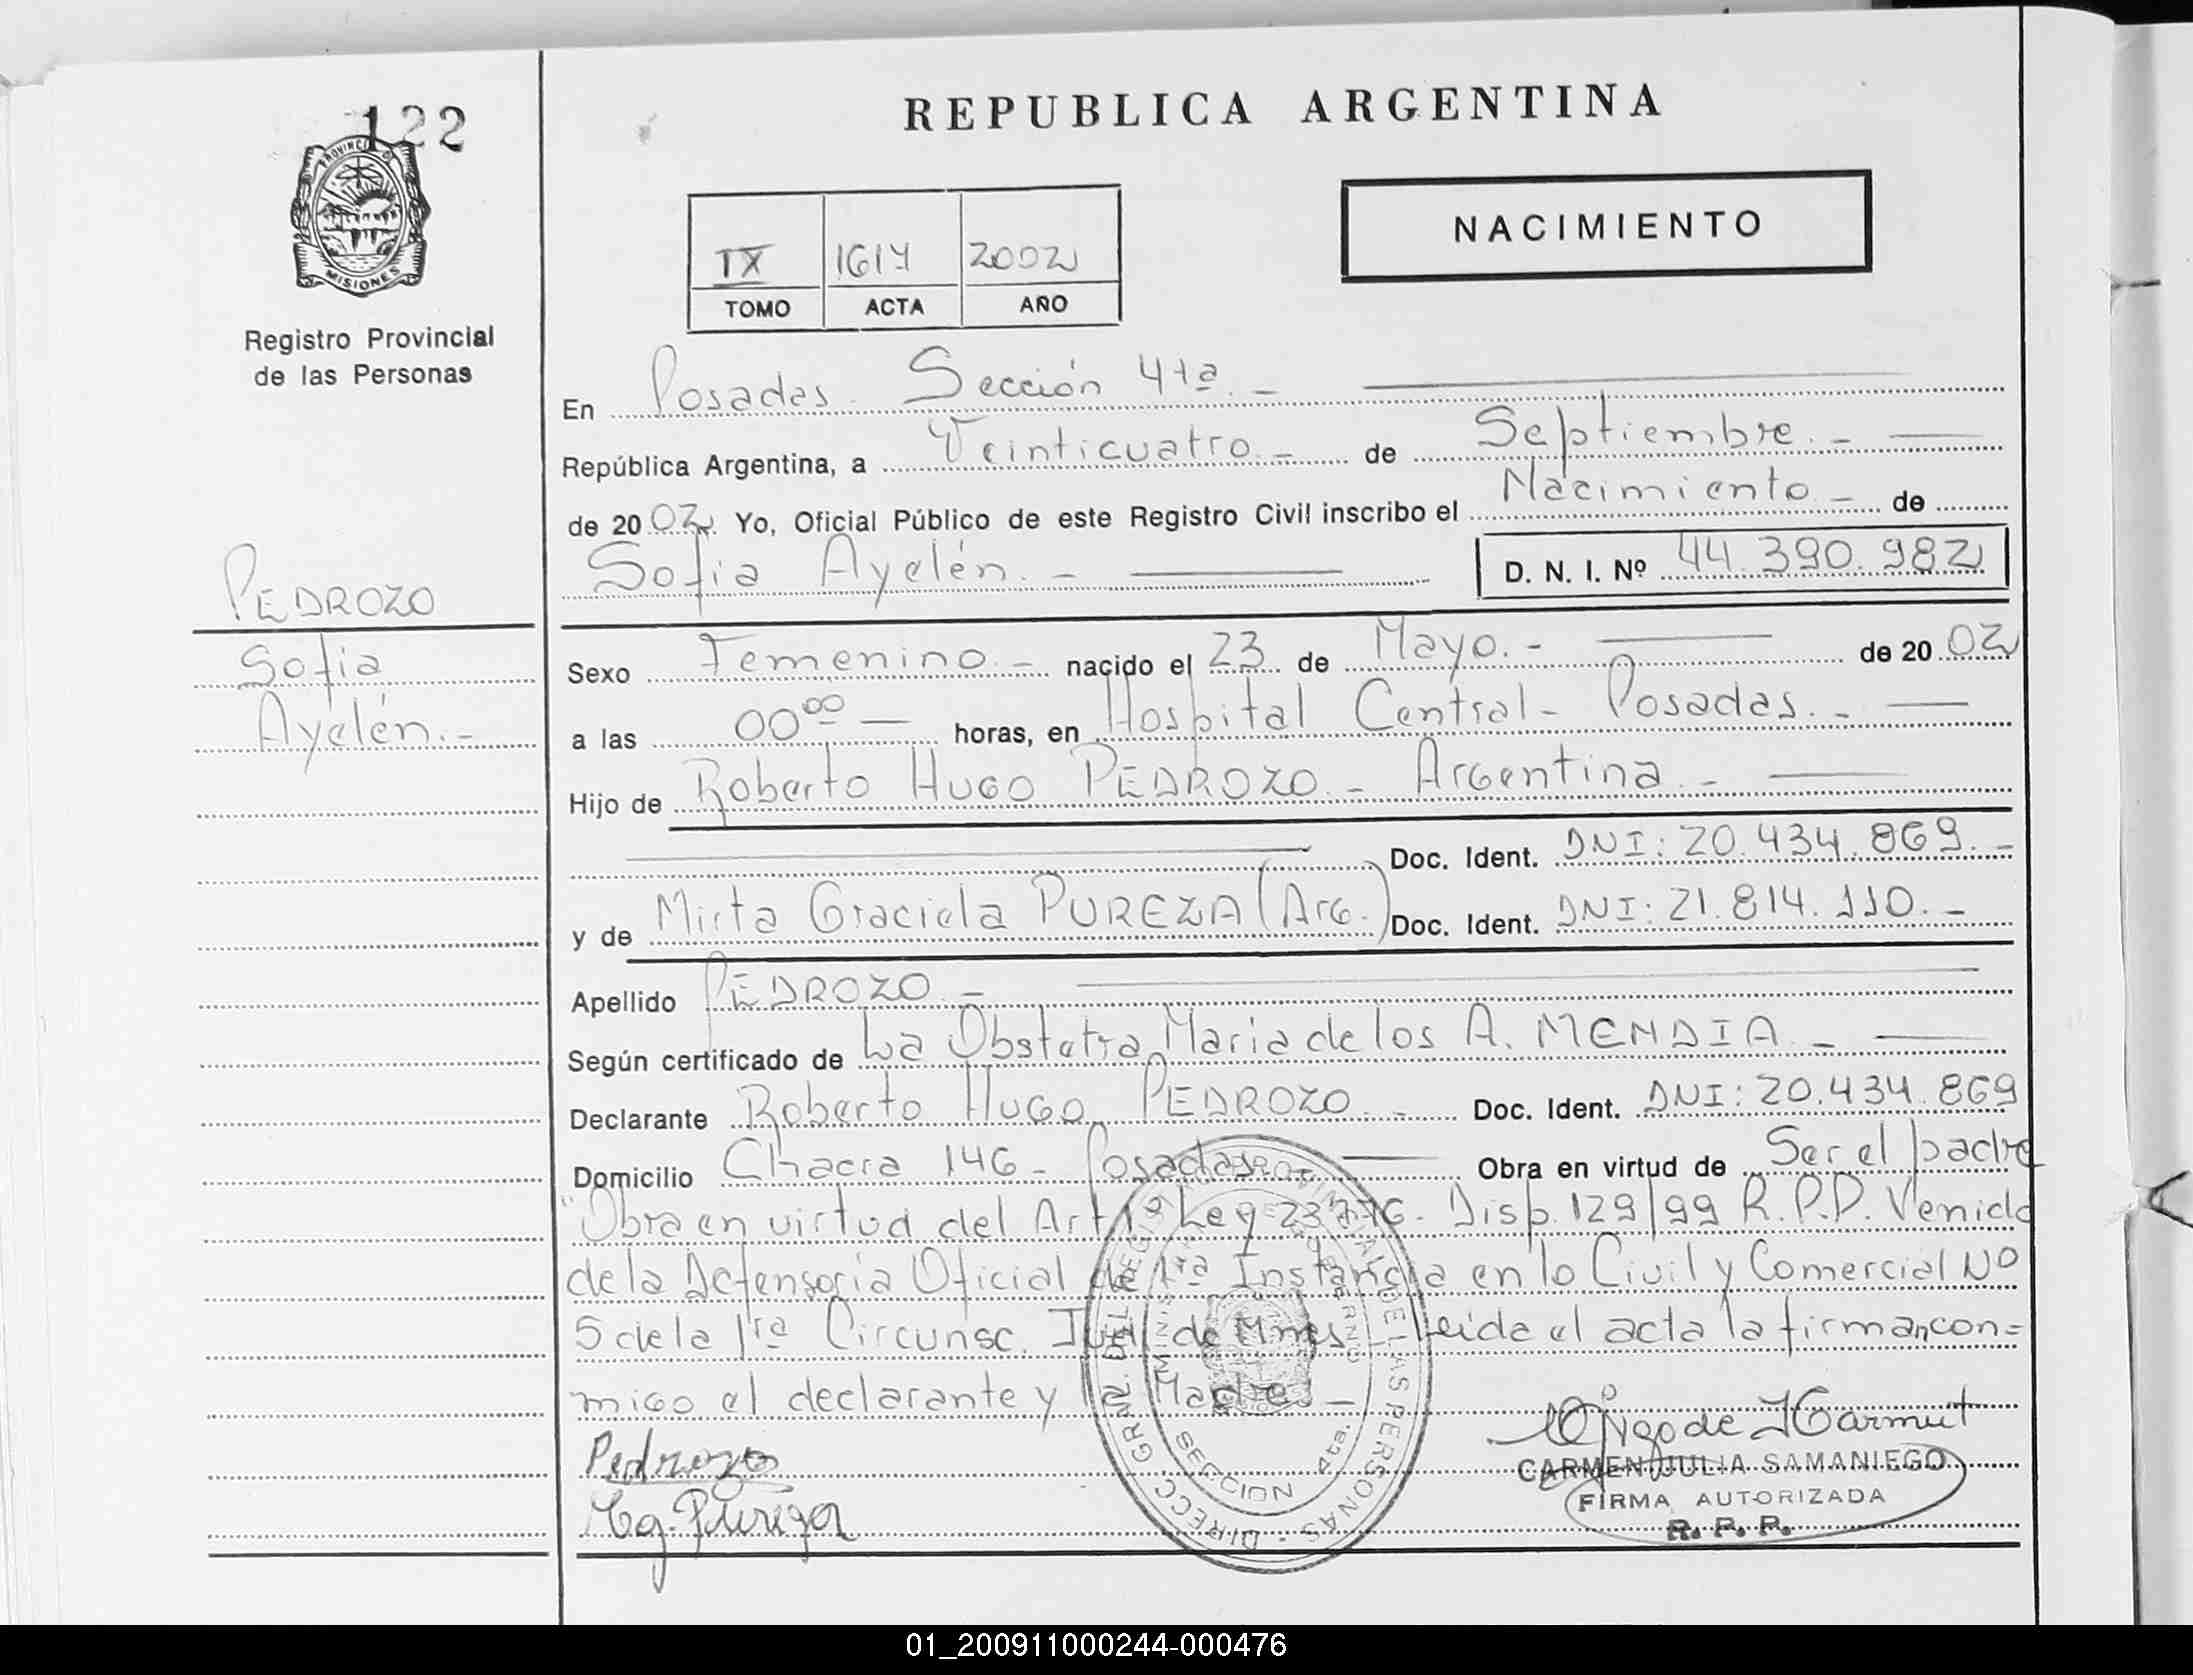 122
REPUBLICA ARGENTINA
PROVINCIA DE
MISIONES
Registro Provincial
de las Personas
NACIMIENTO
IX 1614 2002
TOMO ACTA AÑO
En Posadas. Sección 4ta. -
República Argentina, a Veinticuatro. - de Septiembre. -
de 20 02. Yo, Oficial Público de este Registro Civil inscribo el Nacimiento - de
Sofia Ayelén. - D. N. I. Nº 44.390.982
PEDROZO
Sofia
Ayelén. -
Sexo Femenino. - nacido el 23 de Mayo. - de 20 02
a las 00 00 - horas, en Hospital Central - Posadas. -
Hijo de Roberto Hugo PEDROZO. - Argentina. -
Doc. Ident. DNI: 20.434.869. -
y de Mirta Graciela PUREZA (Arg.) Doc. Ident. DNI: 21.814.110. -
Apellido PEDROZO. -
Según certificado de La Obstetra Maria de los A. MENDIA. -
Declarante Roberto Hugo PEDROZO. - Doc. Ident. DNI: 20.434.869
Domicilio Chacra 146 - Posadas Obra en virtud de Ser el padre
"Obra en virtud del Art 1º Ley 23776. Disp. 129/99 R.P.P. Venido
de la Defensoría Oficial de 1ra Instancia en lo Civil y Comercial Nº
5 de la 1ra Circunsc. Jud. de Mnes. Leida el acta la firman con=
migo el declarante y Madre. -
Pedrozo
DIRECC GRAL. DEL REGISTRO PROVINCIAL DE LAS PERSONAS
MINISTERIO DE GOBIERNO
SECCION 4ta.
CARMEN JULIA SAMANIEGO
FIRMA AUTORIZADA
R. P. P.
01_200911000244-000476